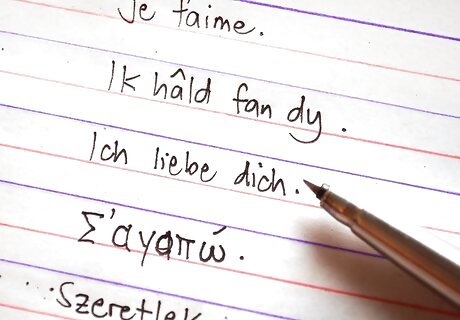 Je t'aime.
Ik hâld fan dy.
Ich liebe dich.
Σ'αγαπώ.
...Szeretlek